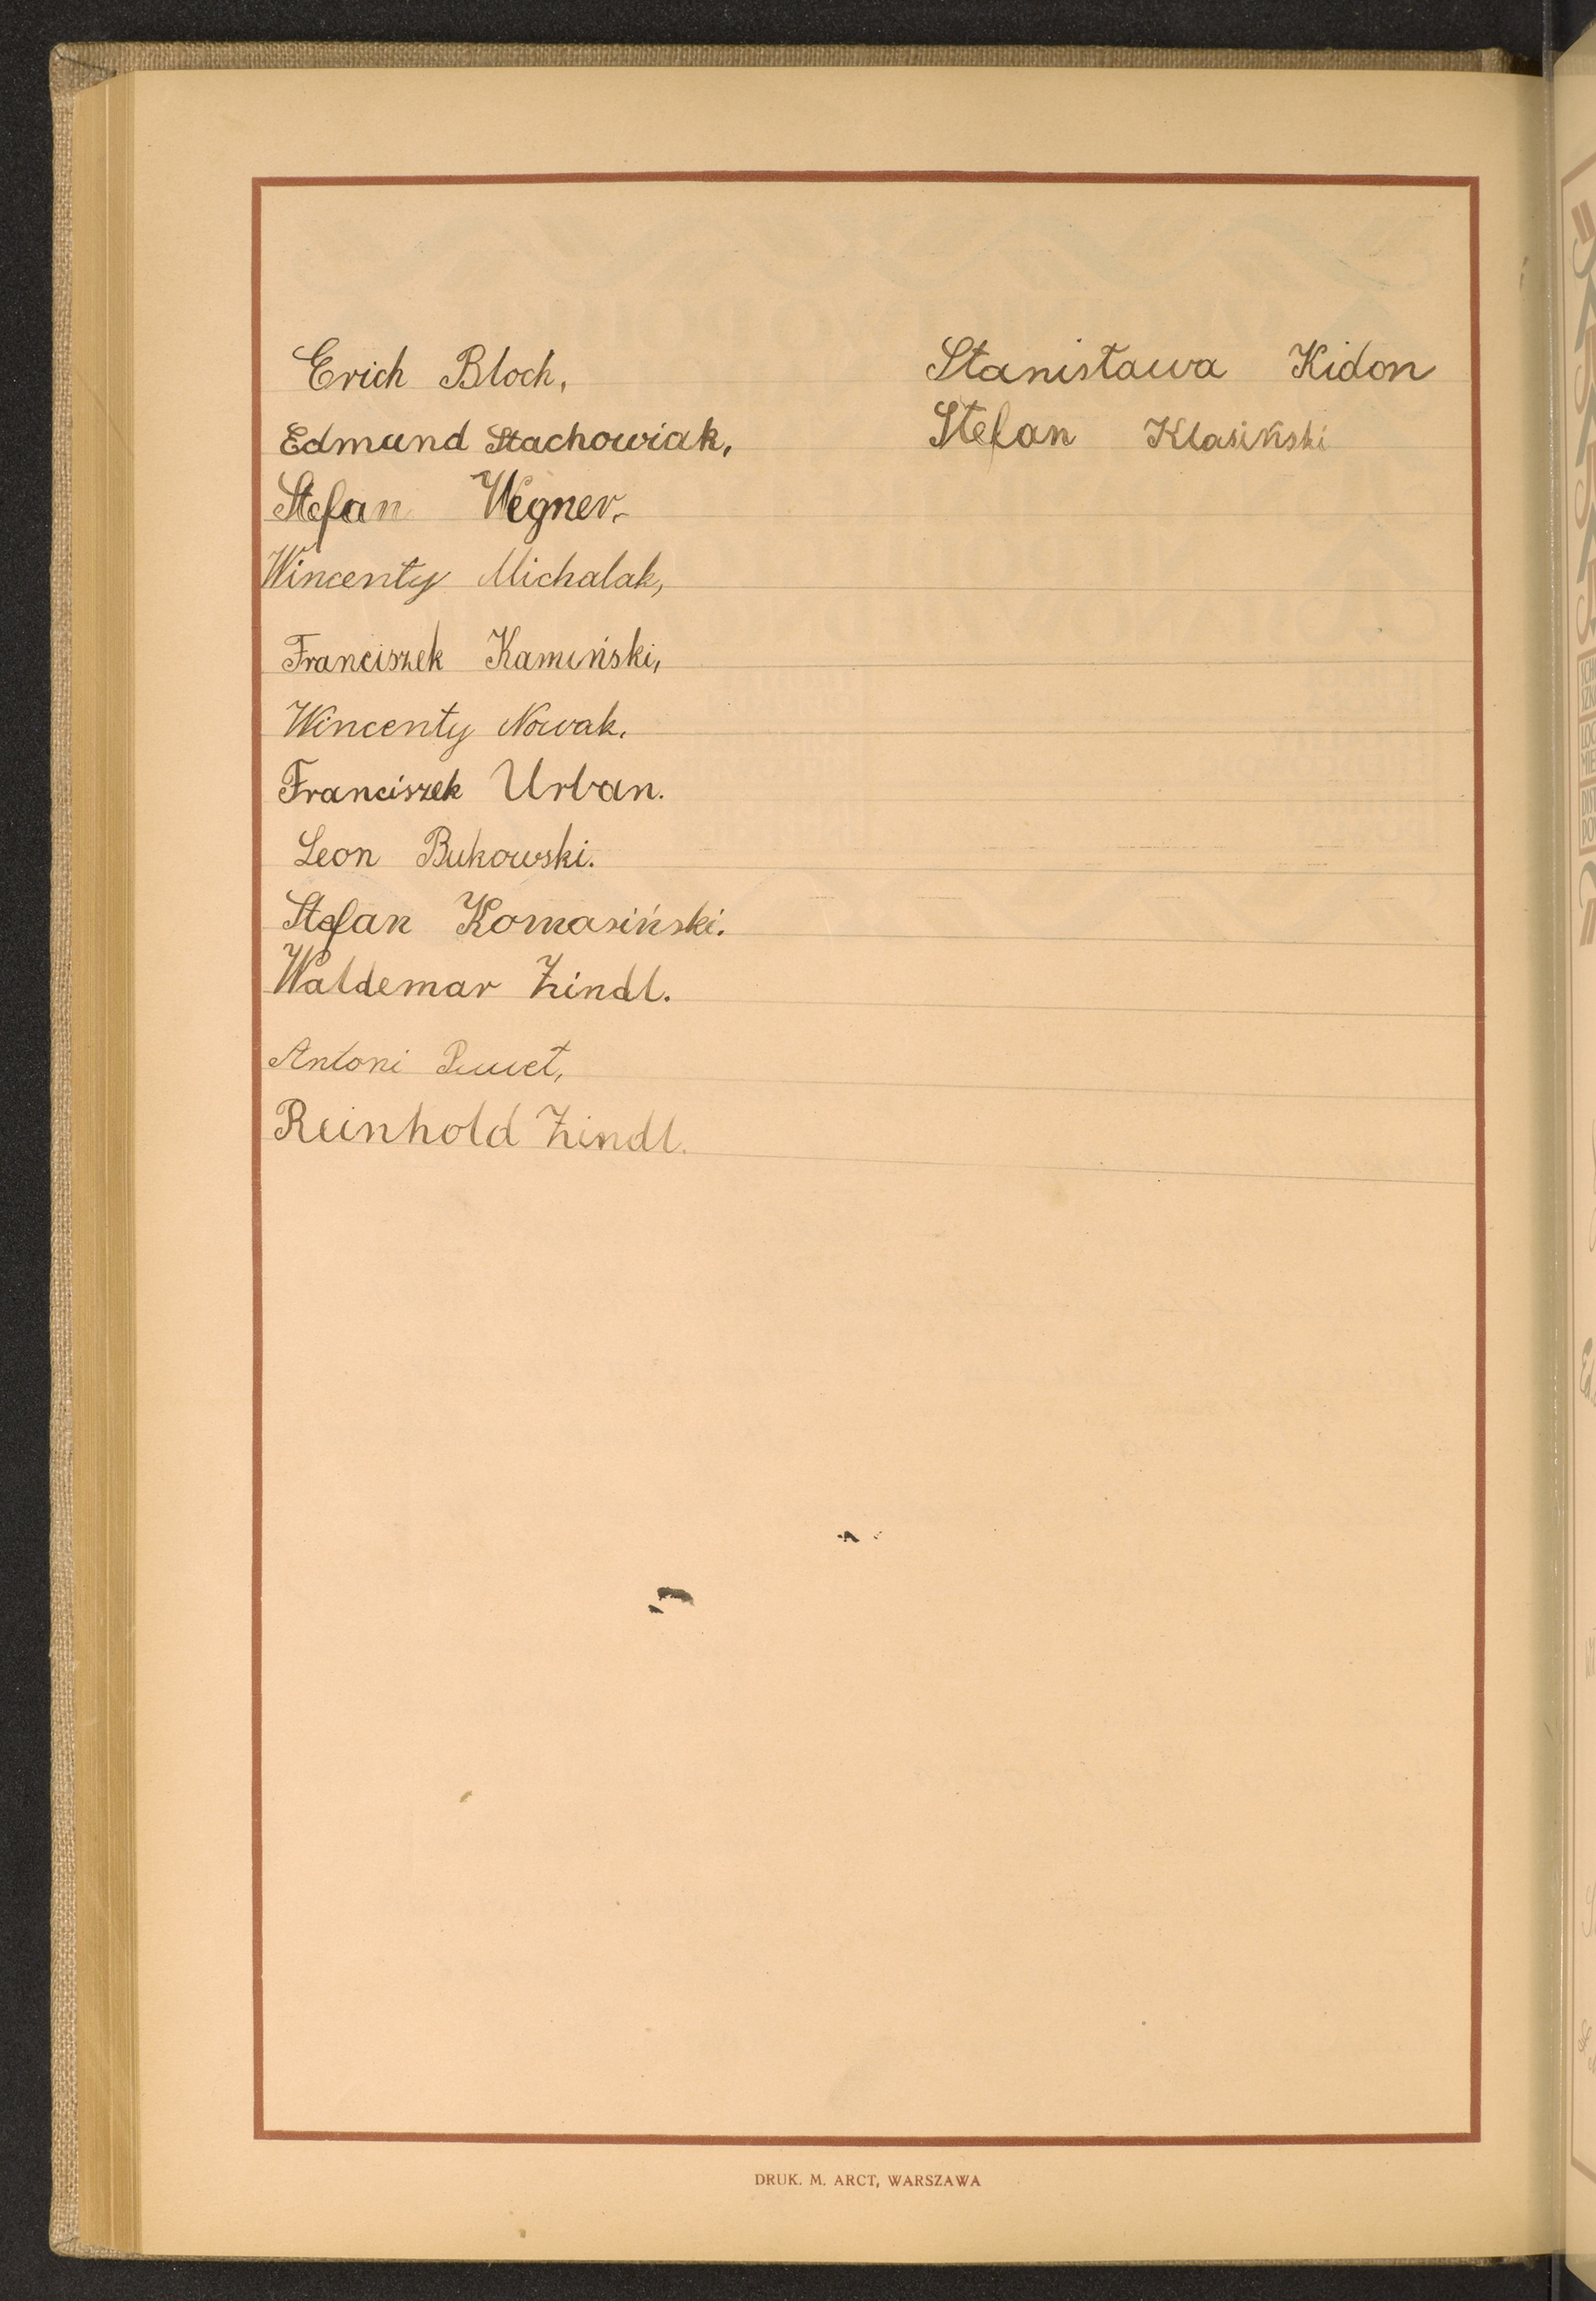 Erich Bloch,
Edmund Stachowiak,
Stefan Wegner.
Wincenty Michalak,
Franciszek Kamiński,
Wincenty Nowak.
Franciszek Urban.
Leon Bukowski.
Stefan Komasiński.
Waldemar Zindl.
Antoni
Reinhold Zindl.
Stanisława Kidon
Stefan Klasiński
DRUK. M. ARCT, WARSZAWA